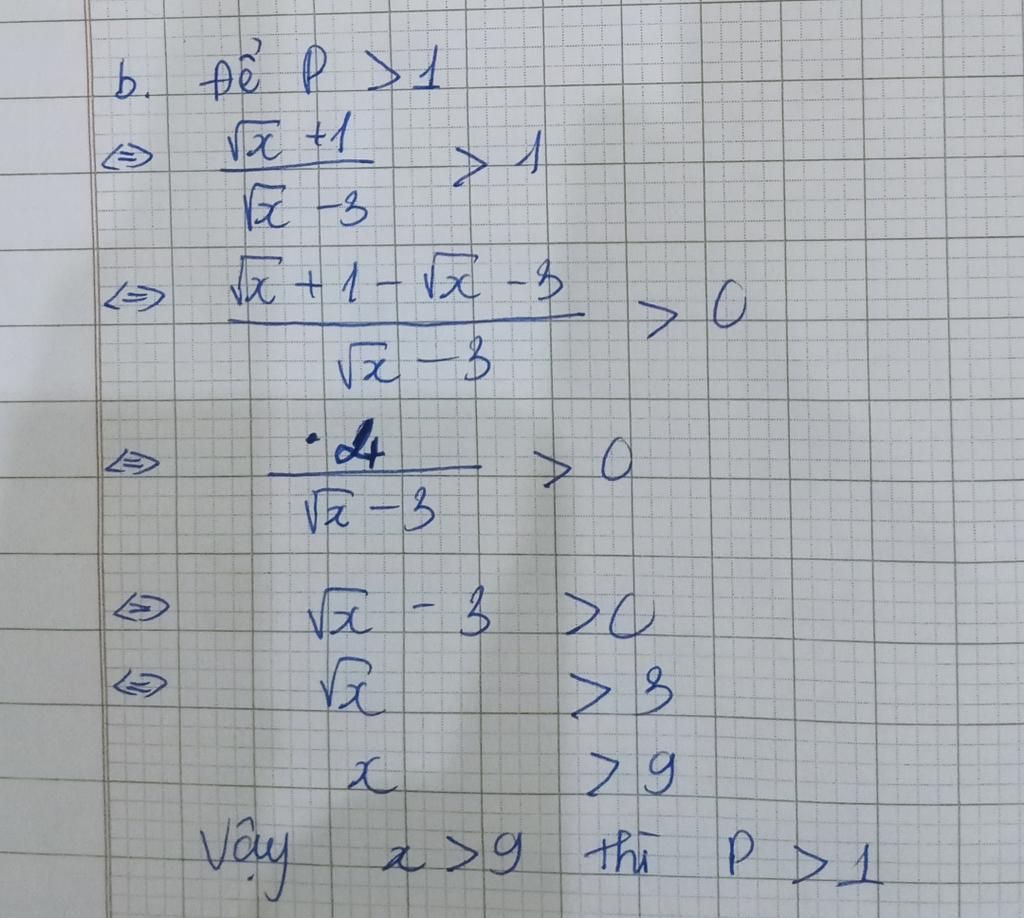 b. Để P > 1
⇔ (√x + 1)/(√x - 3) > 1
⇔ (√x + 1 - √x - 3)/(√x - 3) > 0
⇔ 4/(√x - 3) > 0
⇔ √x - 3 > 0
⇔ √x > 3
x > 9
Vậy x > 9 thì P > 1